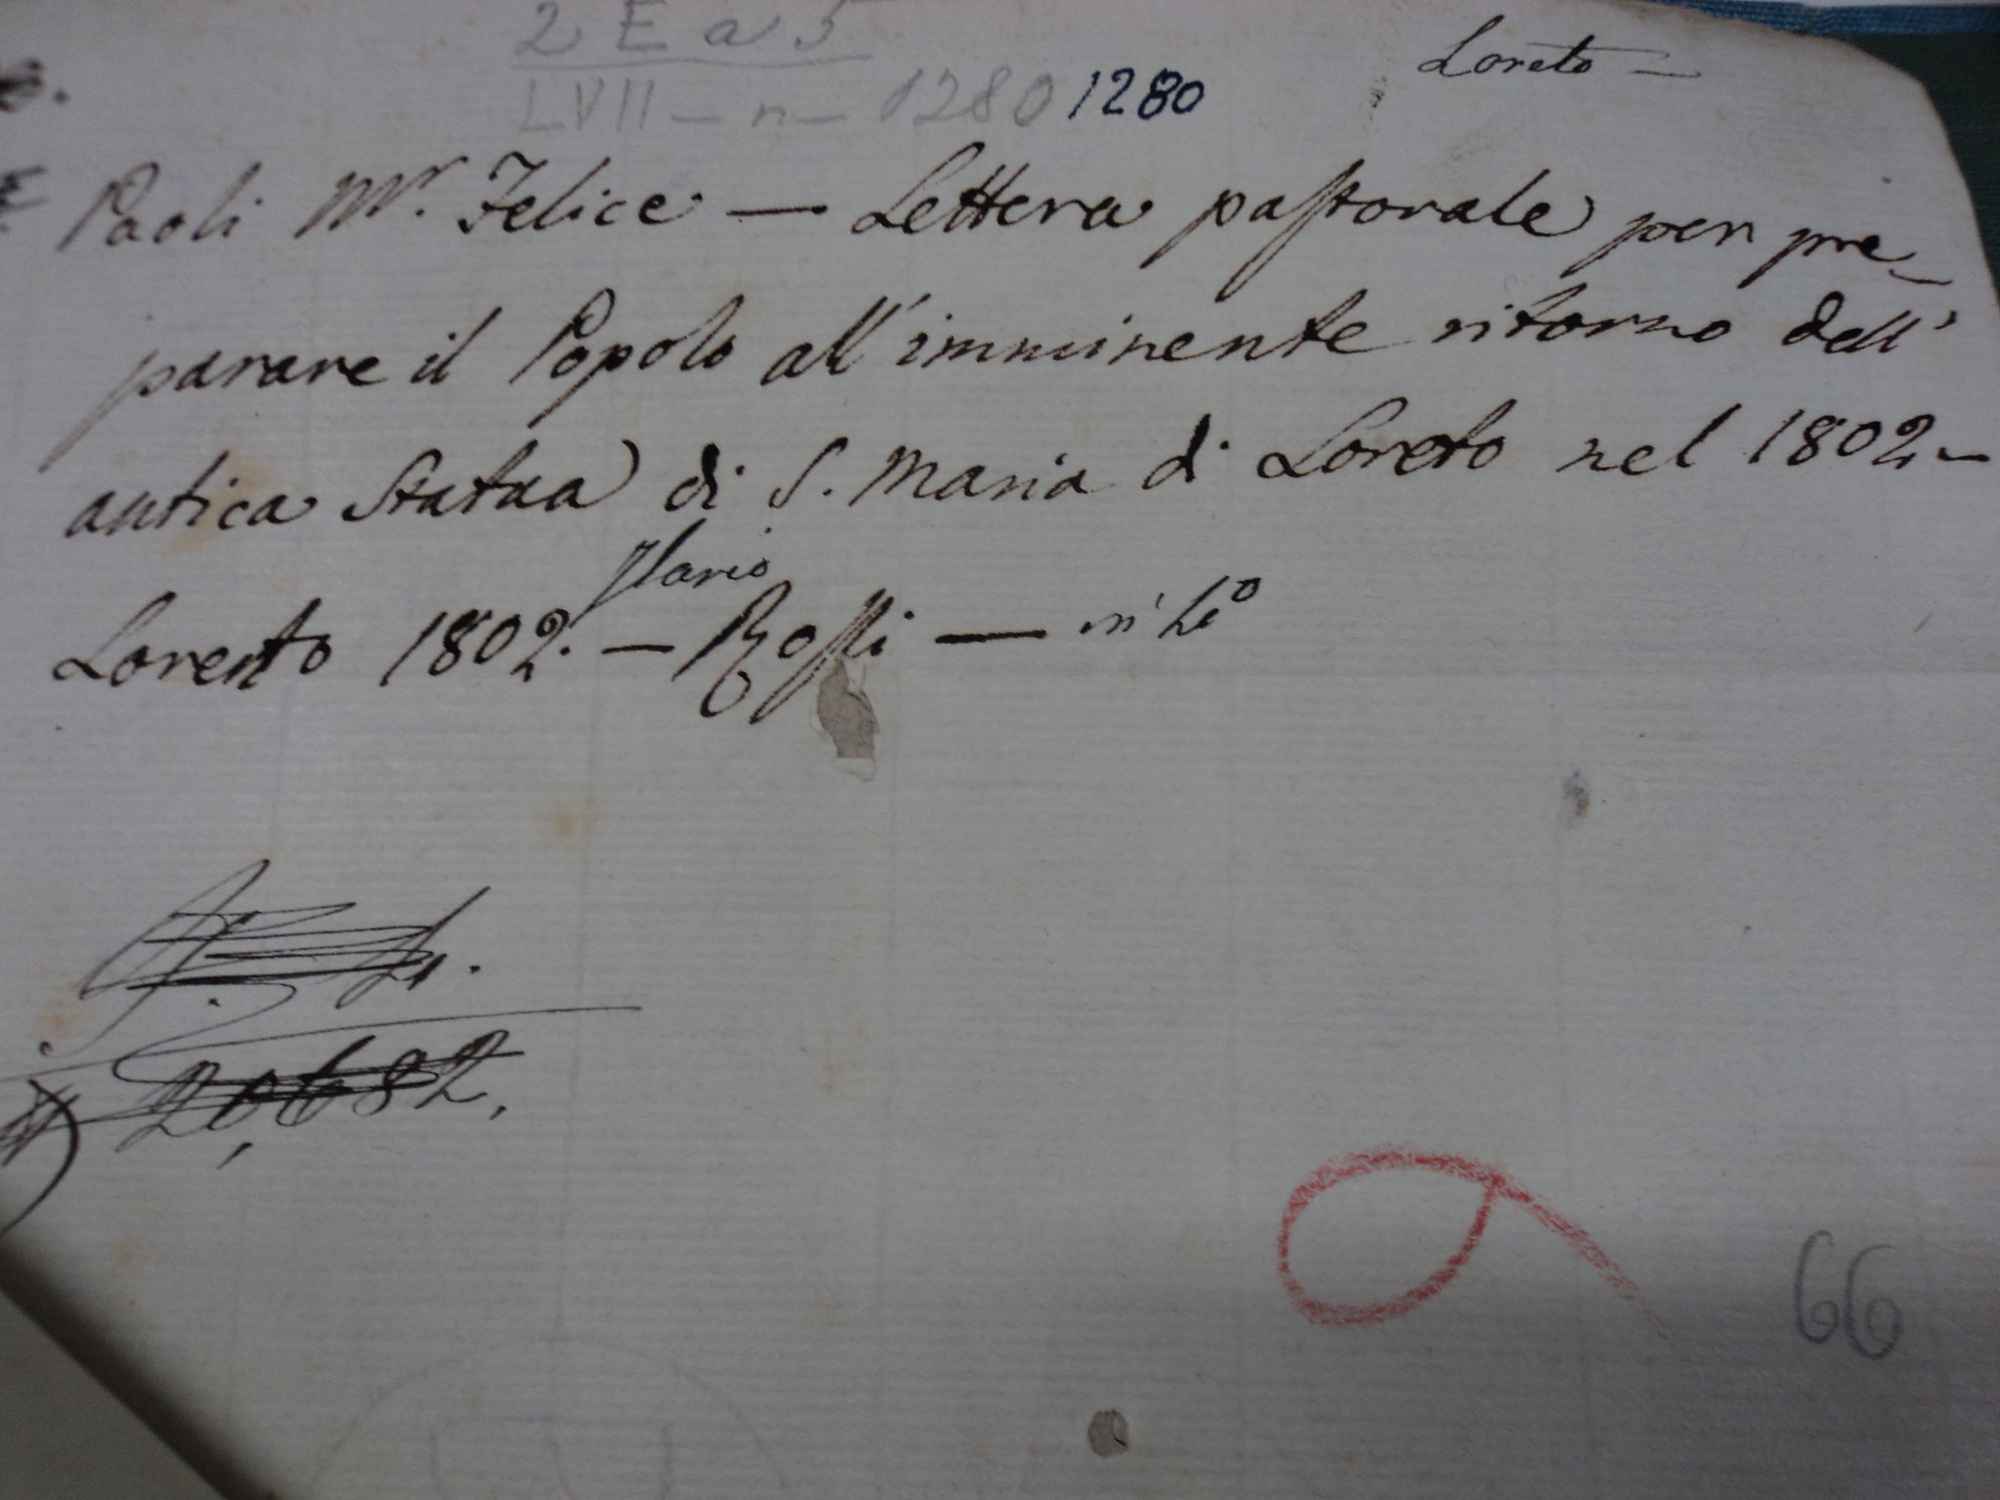 2 E a 5
LVII - n - 1280 1280
Loreto -
Paoli Mr. Felice — Lettera pastorale per pre-
parare il Popolo all'imminente ritorno dell'
antica Statua di S. Maria di Loreto nel 1802 -
Ilario
Loreto 1802. — Rossi — in
20,682,
66